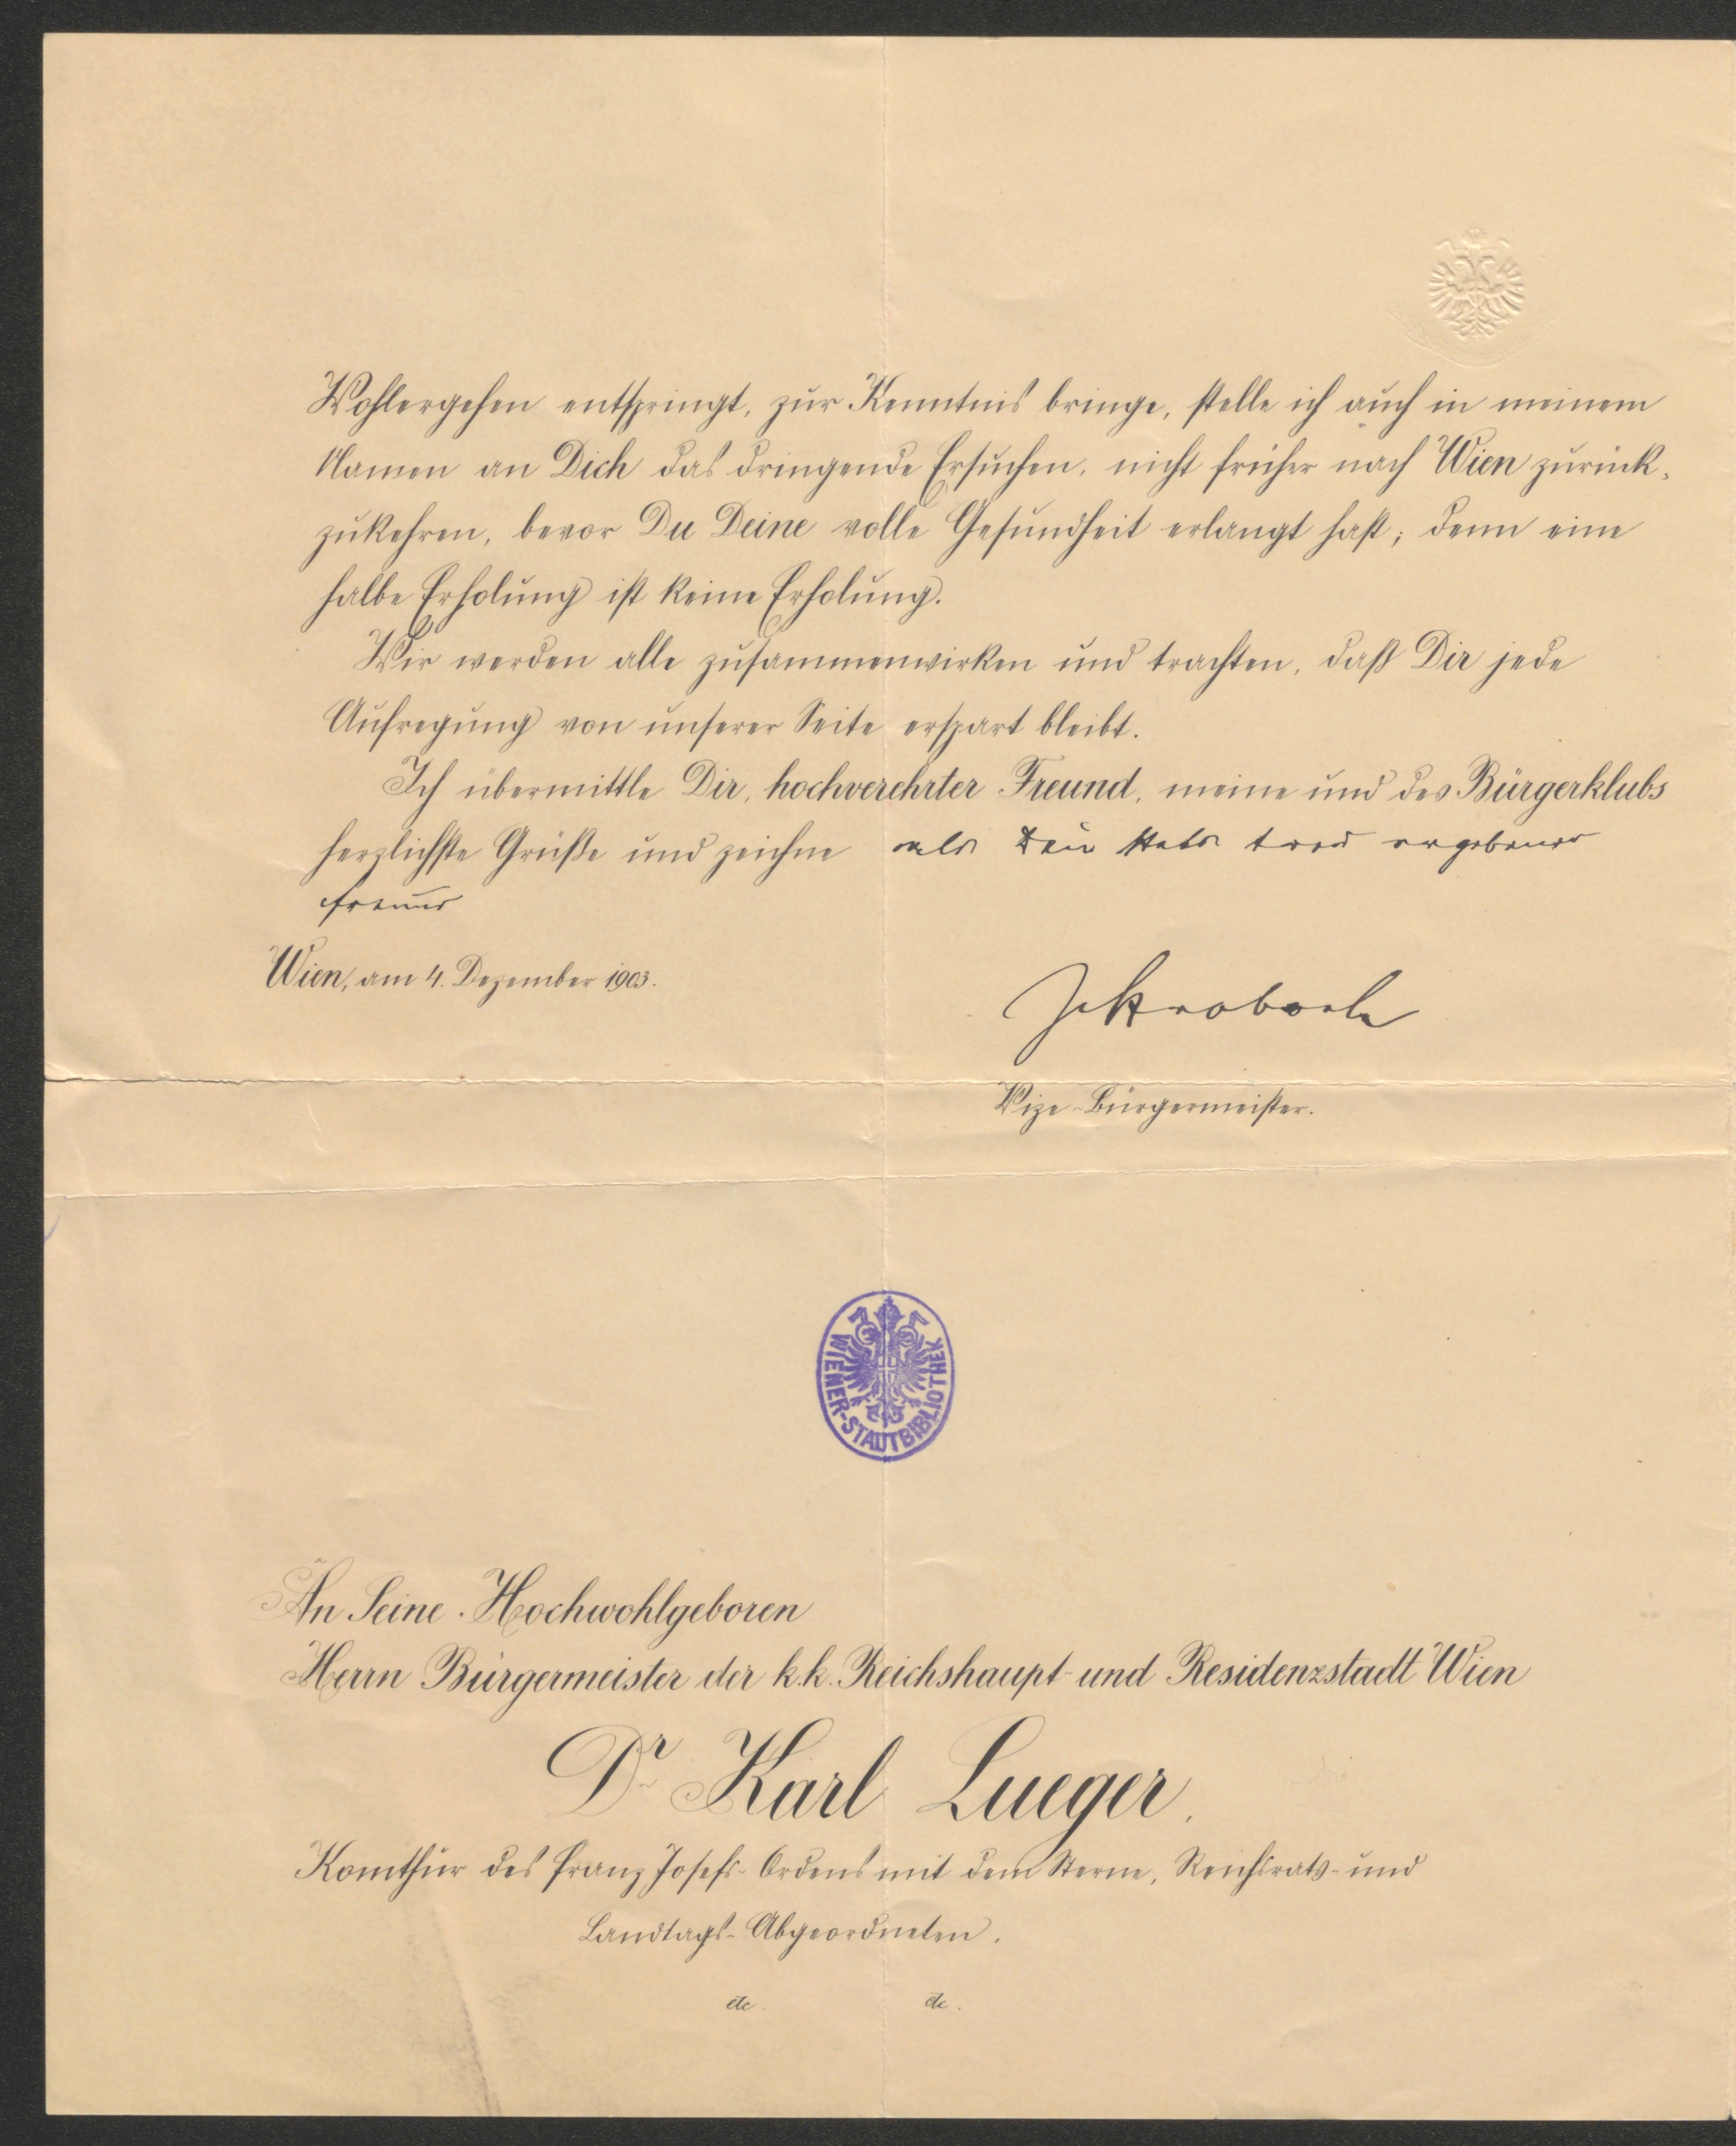 Wohlergehen entspringt, zur Kenntnis bringe, stelle ich auch in meinem
Namen an Dich das dringende Ersuchen, nicht früher nach Wien zurück-
zukehren, bevor Du Deine volle Gesundheit erlangt hast; denn eine
halbe Erholung ist keine Erholung.
Wir werden alle zusammenwirken und trachten, daß Dir jede
Aufregung von unserer Seite erspart bleibt.
Ich übermittle Dir, hochverehrter Freund, meine und des Bürgerklubs
herzlichste Grüße und zeichne als Dein stets treu ergebener
Freund
Wien, am 4. Dezember 1903.
JStrobach
Vize-Bürgermeister.
WIENER-STADTBIBLIOTHEK
An Seine Hochwohlgeboren
Herrn Bürgermeister der k.k. Reichshaupt- und Residenzstadt Wien
Dr Karl Lueger,
Komthur des Franz Josefs-Ordens mit dem Sterne, Reichsrats- und
Landtags-Abgeordneten.
etc. etc.